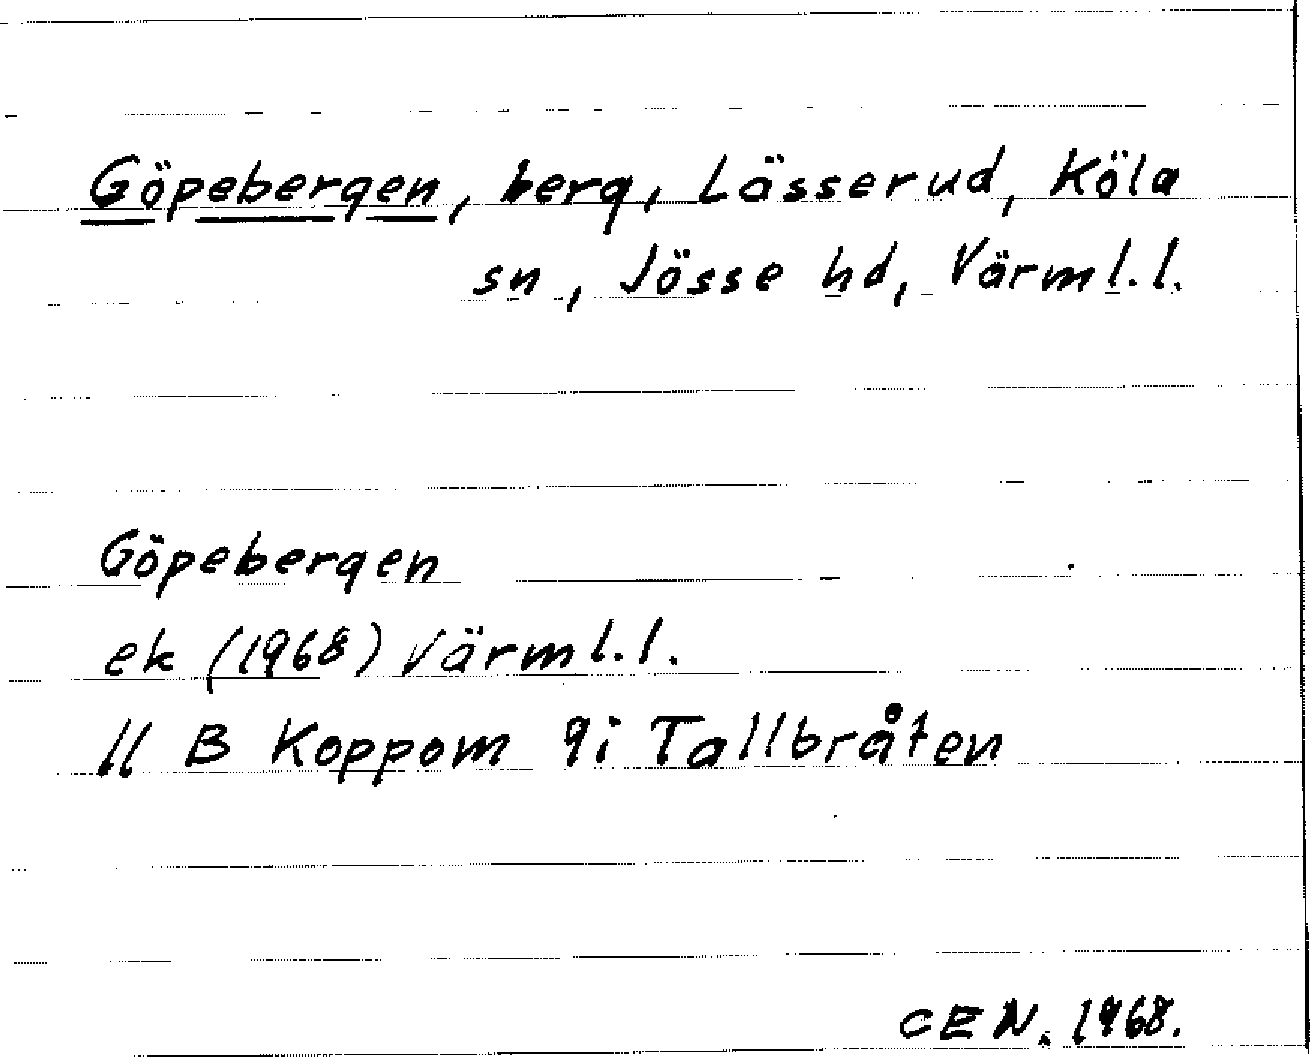 Göpebergen, berg, Lässerud, Köla
sn, Jösse hd, Värml.l.
Göpebergen
ek (1968) Värml.l.
11 B Koppom 9i Tallbråten
CEN. 1968.